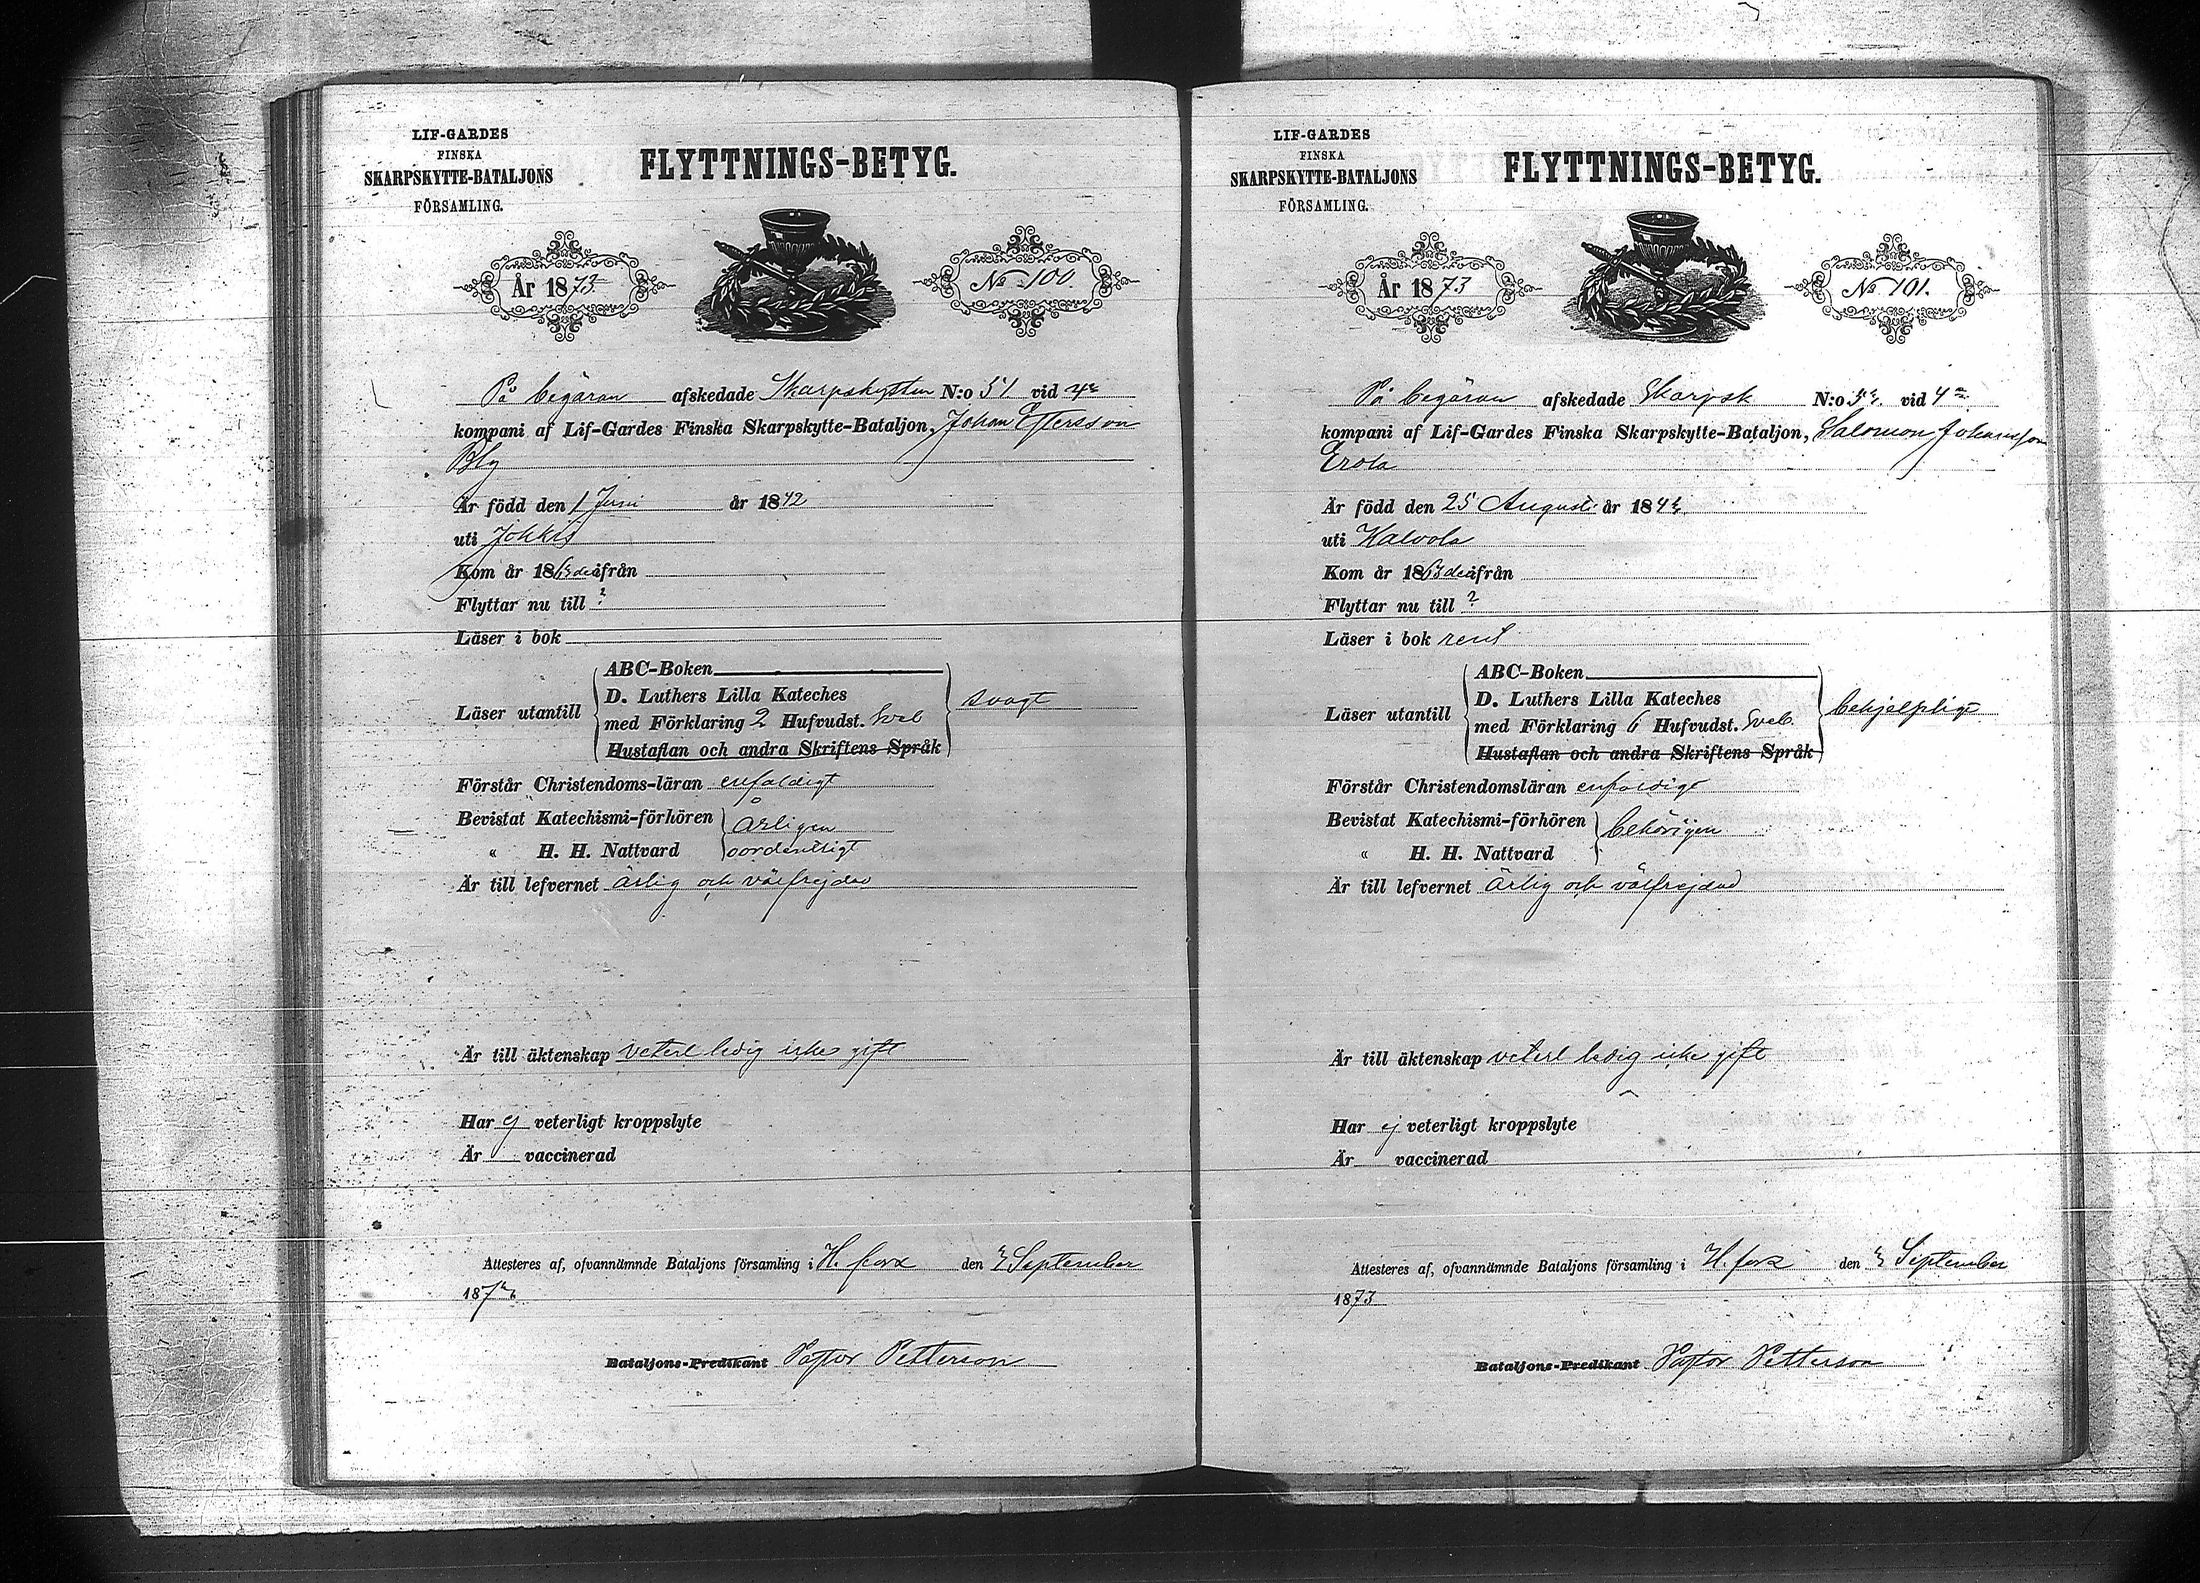 LIF-GARDES
FINSKA
SKARPSKYTTE-BATALJONS
FÖRSAMLING.
FLYTTNINGS-BETYG.
År 1873
No 100.
På begäran afskedade Skarpskytten N:o 51 vid 4de
kompani af Lif-Gardes Finska Skarpskytte-Bataljon, Johan
Bly
Är född den 1 Juni år 1842
uti Jokkis
Kom år 1863 ifrån
Flyttar nu till ?
Läser i bok
Läser utantill
ABC-Boken
D. Luthers Lilla Kateches
med Förklaring 2 Hufvudst. Sveb
Hustaflan och andra Skriftens Språk
svagt
Förstår Christendoms-läran enfaldigt
Bevistat Katechismi-förhören årligen
« H. H. Nattvard oordentligt
Är till lefvernet ärlig och välfrejdad
Är till äktenskap veterl ledig icke gift
Har ej veterligt kroppslyte
Är vaccinerad
Attesteres af, ofvannämnde Bataljons församling i H. fors den 3 September
1873
Bataljons-Predikant Pastor Petterson
LIF-GARDES
FINSKA
SKARPSKYTTE-BATALJONS
FÖRSAMLING.
FLYTTNINGS-BETYG.
År 1873
No 101.
På begäran afskedade Skarpsk N:o vid 4de
kompani af Lif-Gardes Finska Skarpskytte-Bataljon, Salomon Johansson
Erola
Är född den 25 Augusti år 184
uti Kalvola
Kom år 1863 ifrån
Flyttar nu till ?
Läser i bok rent
Läser utantill
ABC-Boken
D. Luthers Lilla Kateches
med Förklaring 6 Hufvudst. Sveb.
Hustaflan och andra Skriftens Språk
behjelpligt
Förstår Christendomsläran enfaldigt
Bevistat Katechismi-förhören behörigen
« H. H. Nattvard
Är till lefvernet ärlig och välfrejdad
Är till äktenskap veterl ledig icke gift
Har ej veterligt kroppslyte
Är vaccinerad
Attesteres af, ofvannämnde Bataljons församling i H. fors den 3 September
1873
Bataljons-Predikant Pastor Petterson